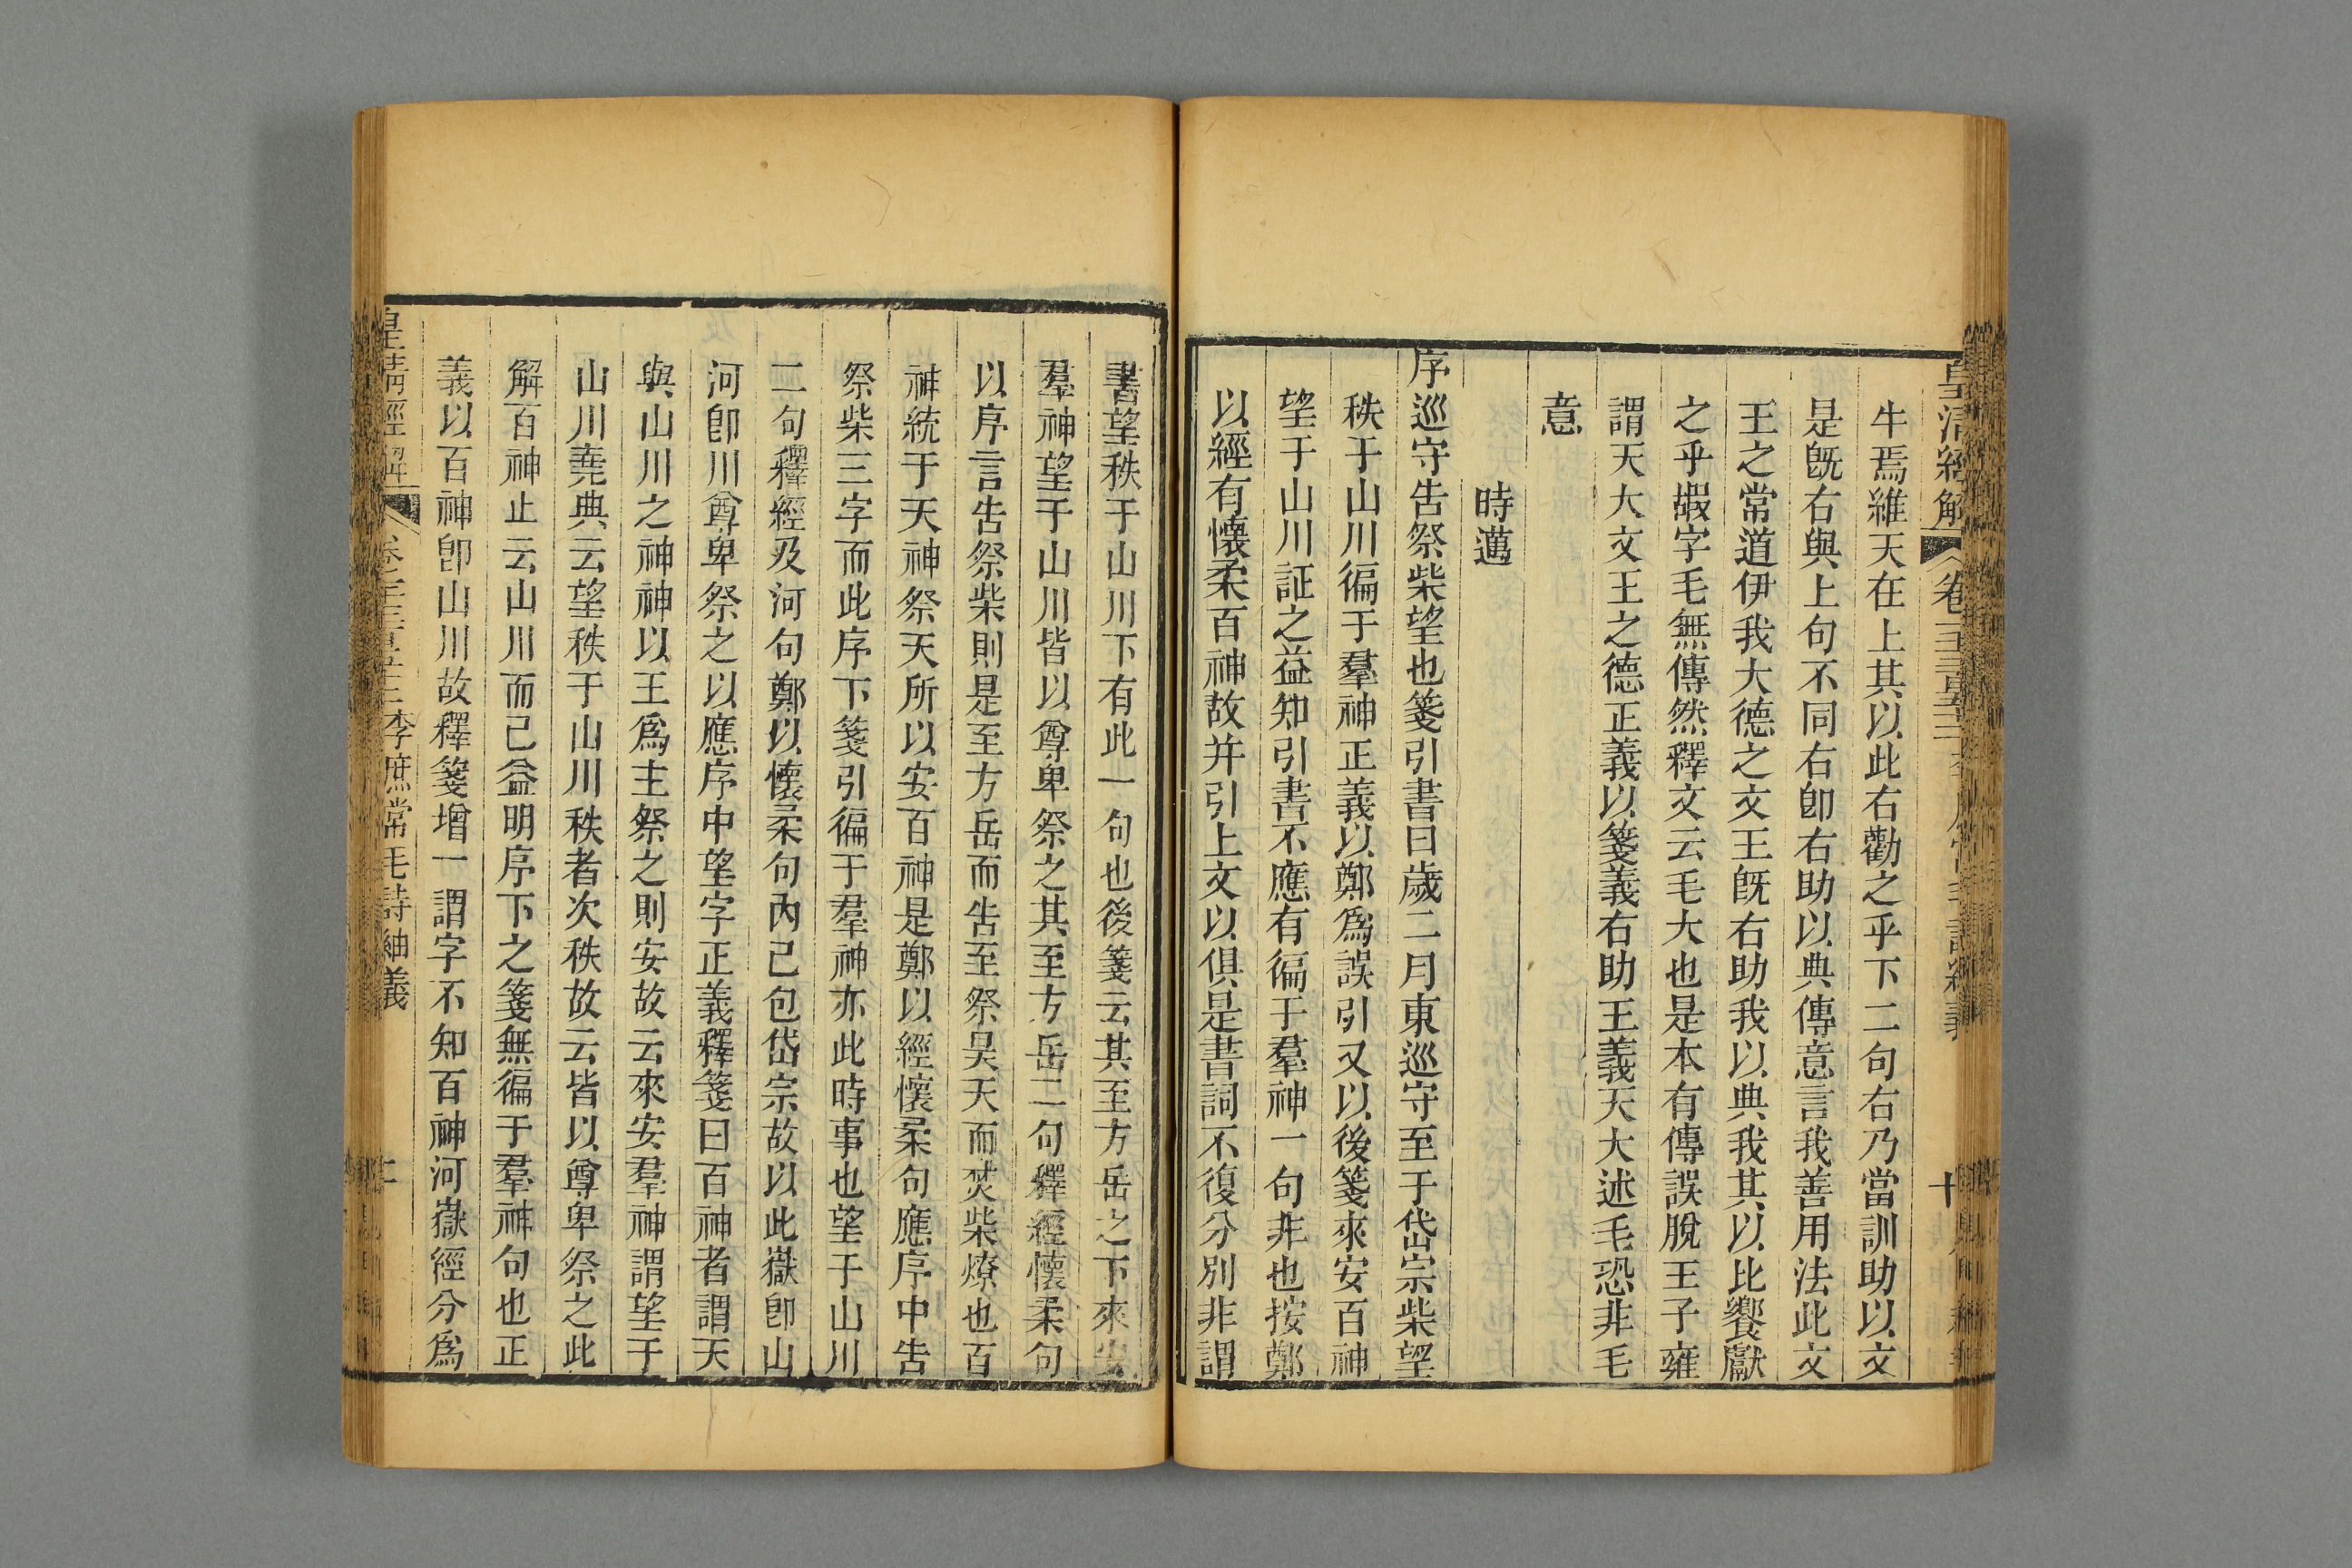 皇清經解
牛焉維天在上其以此右勸之乎下二句右乃當訓助以文
是旣右與上句不同右卽右助以典傳意言我善用法此文
王之常道伊我大德之文王旣右助我以典我其以比饗獻
之乎嘏字毛無傳然釋文云毛大也是本有傳誤脫王子雍
謂天大文王之德正義以箋義右助王義天大述毛恐非毛
意
時邁
序巡守告祭柴望也箋引書曰歲二月東巡守至于岱宗柴望
秩于山川徧于羣神正義以鄭爲誤引又以後箋來安百神
望于山川証之益知引書不應有徧于羣神一句非也按鄭
以經有懷柔百神故并引上文以俱是書詞不復分別非謂
書望秩于山川下有此一句也後箋云其至方岳之下來安
羣神望于山川皆以尊卑祭之其至方岳二句釋經懷柔句
以序言告祭柴則是至方岳而告至祭昊天而焚柴燎也百
神統于天神祭天所以安百神是鄭以經懷柔句應序中告
祭柴三字而此序下箋引徧于羣神亦此時事也望于山川
二句釋經及河句鄭以懷柔句內已包岱宗故以此嶽卽山
河卽川尊卑祭之以應序中望字正義釋箋曰百神者謂天
與山川之神神以王爲主祭之則安故云來安羣神謂望于
山川堯典云望秩于山川秩者次秩故云皆以尊卑祭之此
解百神止云山川而己益明序下之箋無徧于羣神句也正
義以百神卽山川故釋箋增一謂字不知百神河嶽經分爲
皇清經解 李庶常毛詩紬義